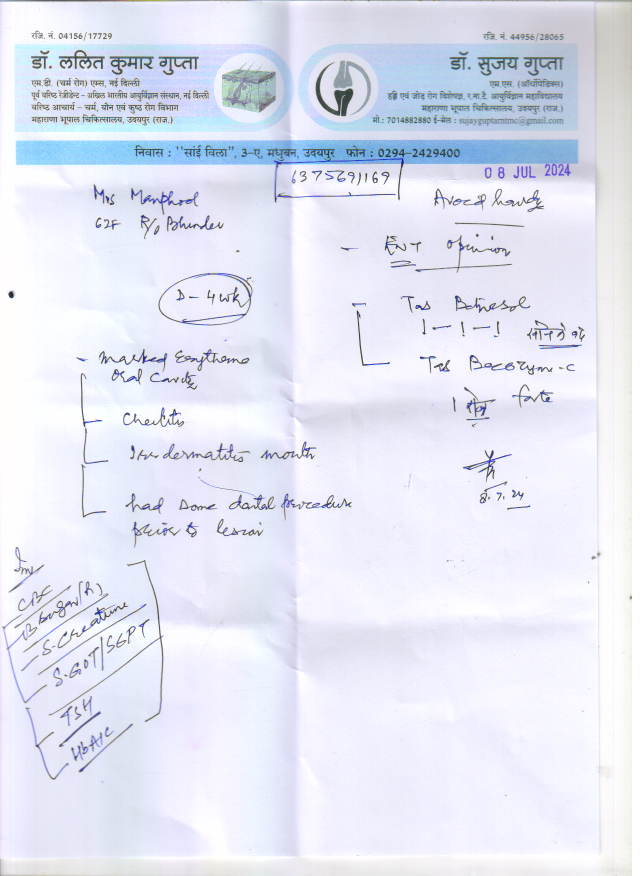 रजि. नं. 04156/17729
डॉ. ललित कुमार गुप्ता
एम.डी. (चर्म रोग) एम्स, नई दिल्ली
पूर्व वरिष्ठ रेजीडेन्ट - अखिल भारतीय आयुर्विज्ञान संस्थान, नई दिल्ली
वरिष्ठ आचार्य - चर्म, यौन एवं कुष्ठ रोग विभाग
महाराणा भूपाल चिकित्सालय, उदयपुर (राज.)
रजि. नं. 44956/28065
डॉ. सुजय गुप्ता
एम.एस. (ऑर्थोपेडिक्स)
हड्डी एवं जोड़ रोग विशेषज्ञ, र.ना.टै. आयुर्विज्ञान महाविद्यालय
महाराणा भूपाल चिकित्सालय, उदयपुर (राज.)
मो.: 7014882880 ई-मेल : sujayguptarntmc@gmail.com
निवास : "सांई विला", 3-ए, मधुबन, उदयपुर फोन : 0294-2429400
6375691169
08 JUL 2024
Mrs
62F R/o Bhinder
D - 4wk
- Marked Erythema
Oral Cavity
- Cheilitis
- dermatitis mouth
- had some dental procedure
prior to lesion
Inv
CBC
B Sugar (R)
S. Creatinine
SGOT/SGPT
TSH
HbA1C
Avoid
- ENT opinion
- Tab Betnesol
1 - 1 - 1
- Tab Becozym-C
forte
1 रोज
8.7.24